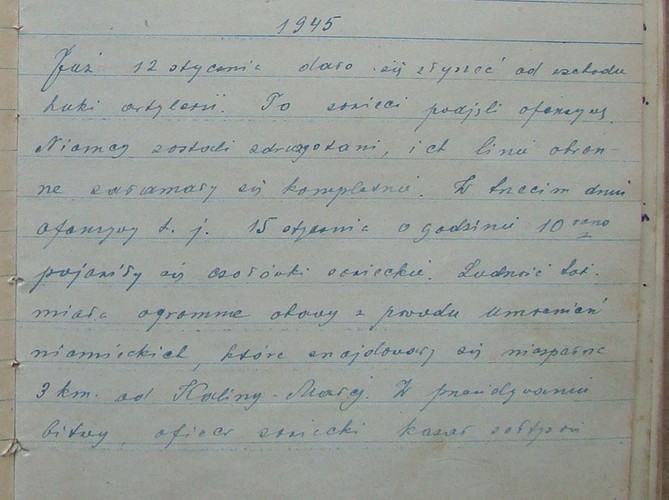 1945
Już 12 stycznia dało się słyszeć od wschodu
huki artylerii. To sowieci podjęli ofenzywę.
Niemcy zostali zdruzgotani, ich linie obron-
ne załamały się kompletnie. W trzecim dniu
ofenzywy t. j. 15 stycznia o godzinie 10 rano
pojawiły się czołówki sowieckie. Ludność
miała ogromne obawy z powodu umocnień
niemieckich, które znajdowały się niespełna
3 km. od Kaliny-Małej. W przewidywaniu
bitwy, oficer sowiecki kazał sołtysowi